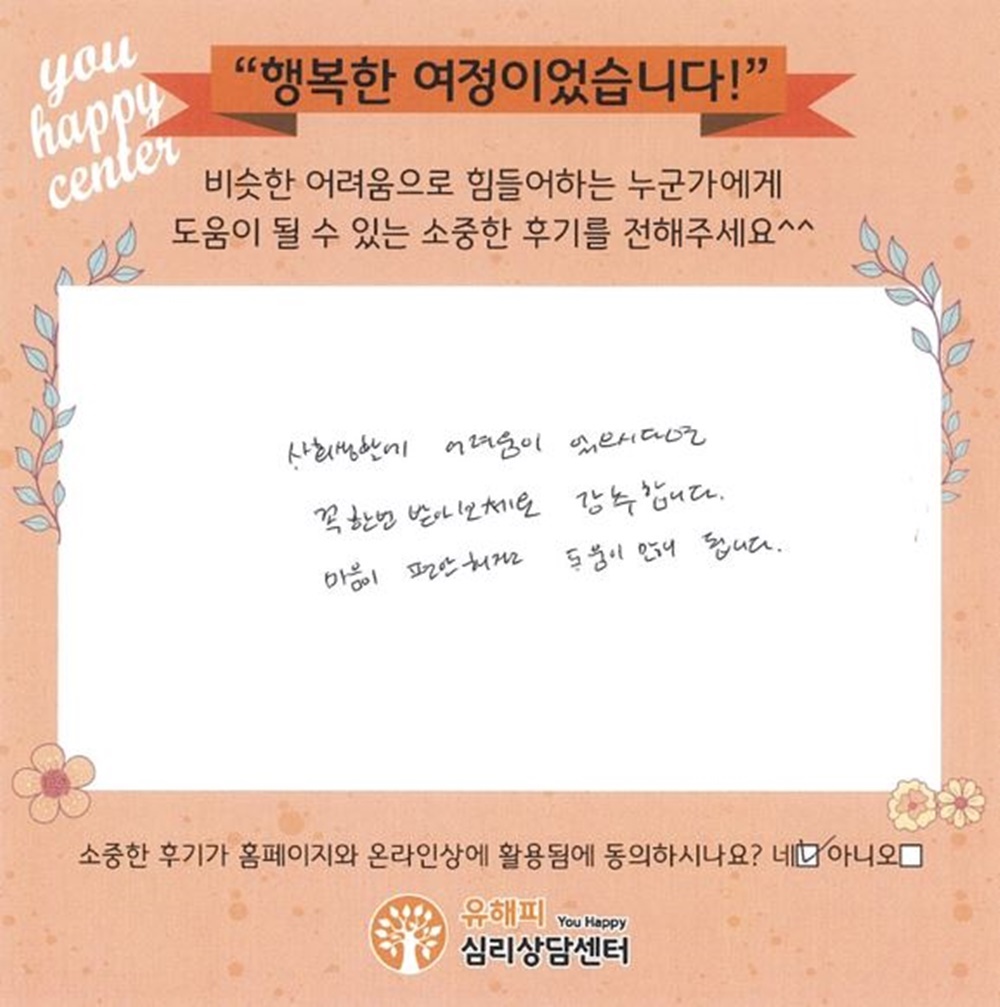 you
happy
center
“행복한 여정이었습니다!”
비슷한 어려움으로 힘들어하는 누군가에게
도움이 될 수 있는 소중한 후기를 전해주세요^^
사회생활에 어려움이 있으시다면
꼭 한번 받아보세요 강추합니다.
마음이 편안해지고 도움이 많이 됩니다.
소중한 후기가 홈페이지와 온라인상에 활용됨에 동의하시나요? 네 아니오
유해피 You Happy
심리상담센터